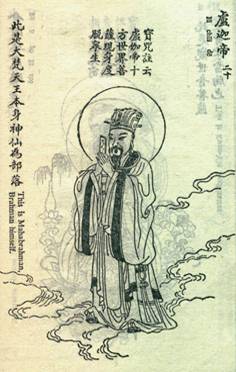 盧迦帝 二十
寶咒註云
盧迦帝十
方世界菩
薩現身度
脫眾生
此是大梵天王本身神仙為部落
This is Mahabrahman,
Brahman himself.